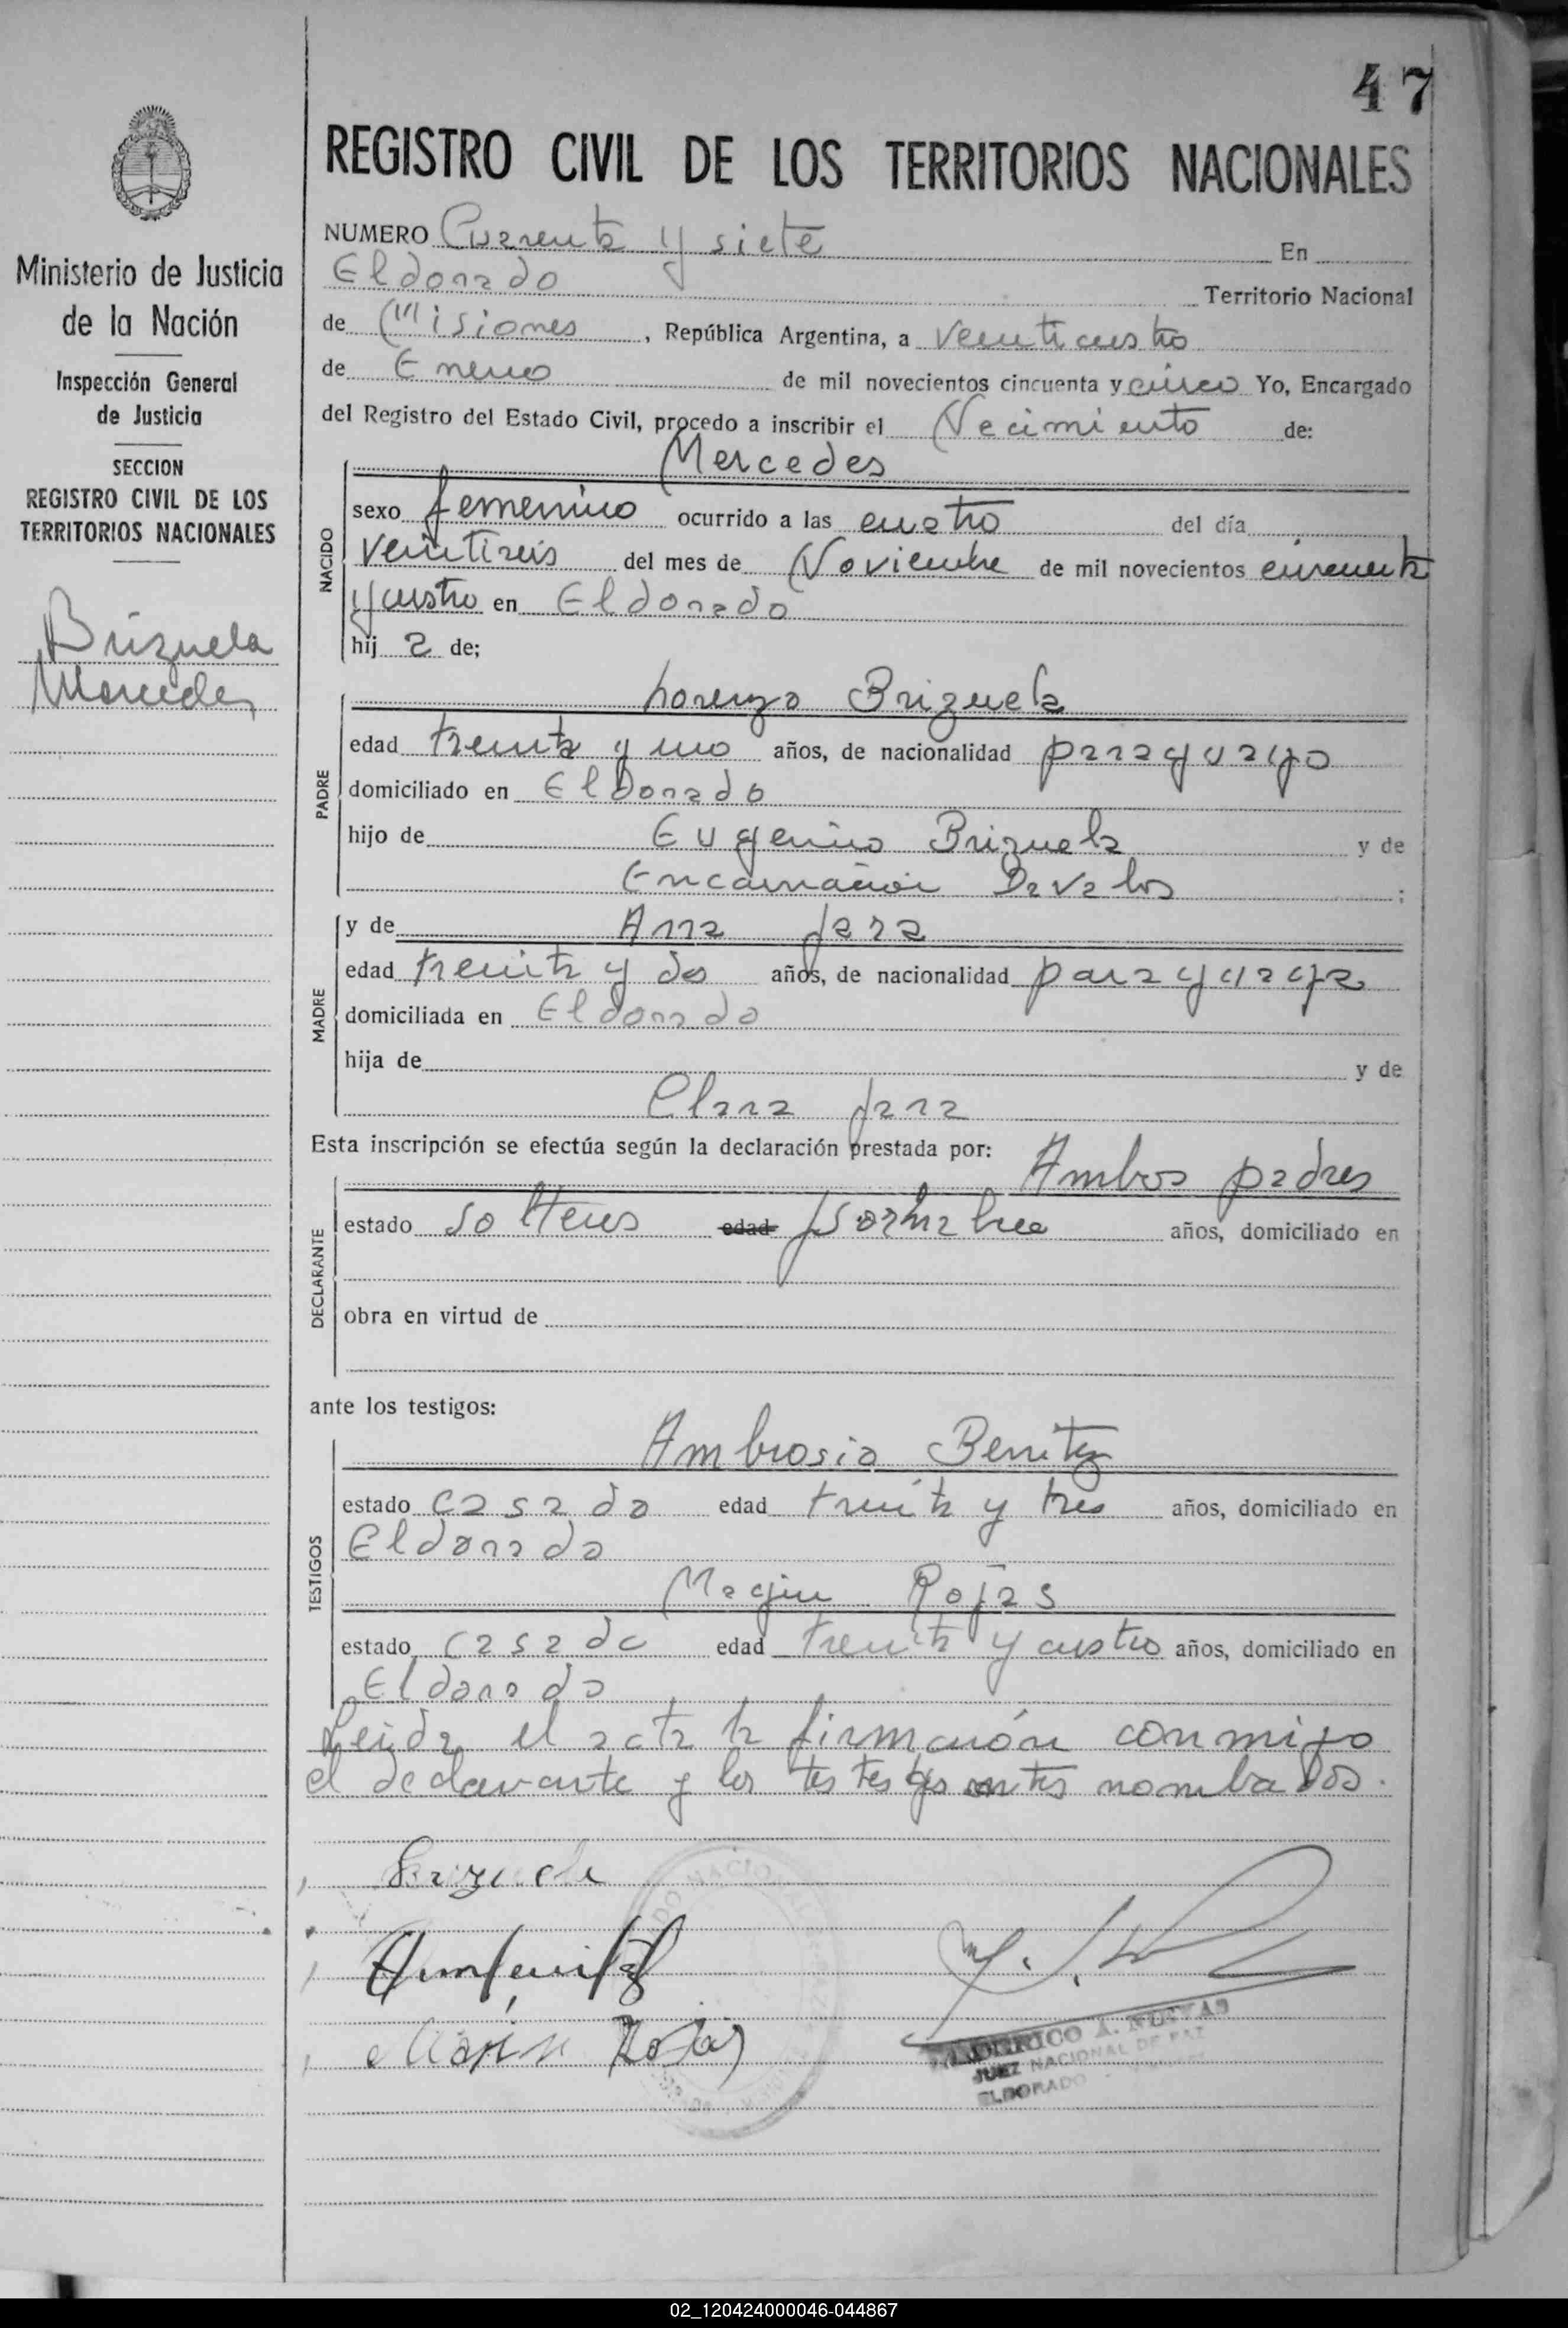 47
REGISTRO CIVIL DE LOS TERRITORIOS NACIONALES
Ministerio de Justicia
de la Nación
Inspección General
de Justicia
SECCION
REGISTRO CIVIL DE LOS
TERRITORIOS NACIONALES
Brizuela
Mercedes
NUMERO Cuarenta y siete En
Eldorado Territorio Nacional
de Misiones, República Argentina, a veinticuatro
de Enero de mil novecientos cincuenta y cinco Yo, Encargado
del Registro del Estado Civil, procedo a inscribir el Nacimiento de:
NACIDO
Mercedes
sexo femenino ocurrido a las cuatro del día
veintiseis del mes de Noviembre de mil novecientos cincuenta
y cuatro en Eldorado
hija de;
PADRE
Lorenzo Brizuela
edad treinta y uno años, de nacionalidad paraguayo
domiciliado en Eldorado
hijo de Eugenio Brizuela y de
Encarnación Davalos ;
MADRE
y de Ana Jara
edad treinta y dos años, de nacionalidad paraguaya
domiciliada en Eldorado
hija de y de
Clara Jara
Esta inscripción se efectúa según la declaración prestada por:
DECLARANTE
Ambos padres
estado solteros edad años, domiciliado en
obra en virtud de
ante los testigos:
TESTIGOS
Ambrosio Benitez
estado casado edad treinta y tres años, domiciliado en
Eldorado
Magin Rojas
estado casado edad treinta y cuatro años, domiciliado en
Eldorado
Leida el acta la firmarón conmigo
el declarante y los testigos antes nombados.
Brizuela
Rojas
A. NUEVAS
JUEZ NACIONAL DE PAZ
ELDORADO
02_120424000046-044867